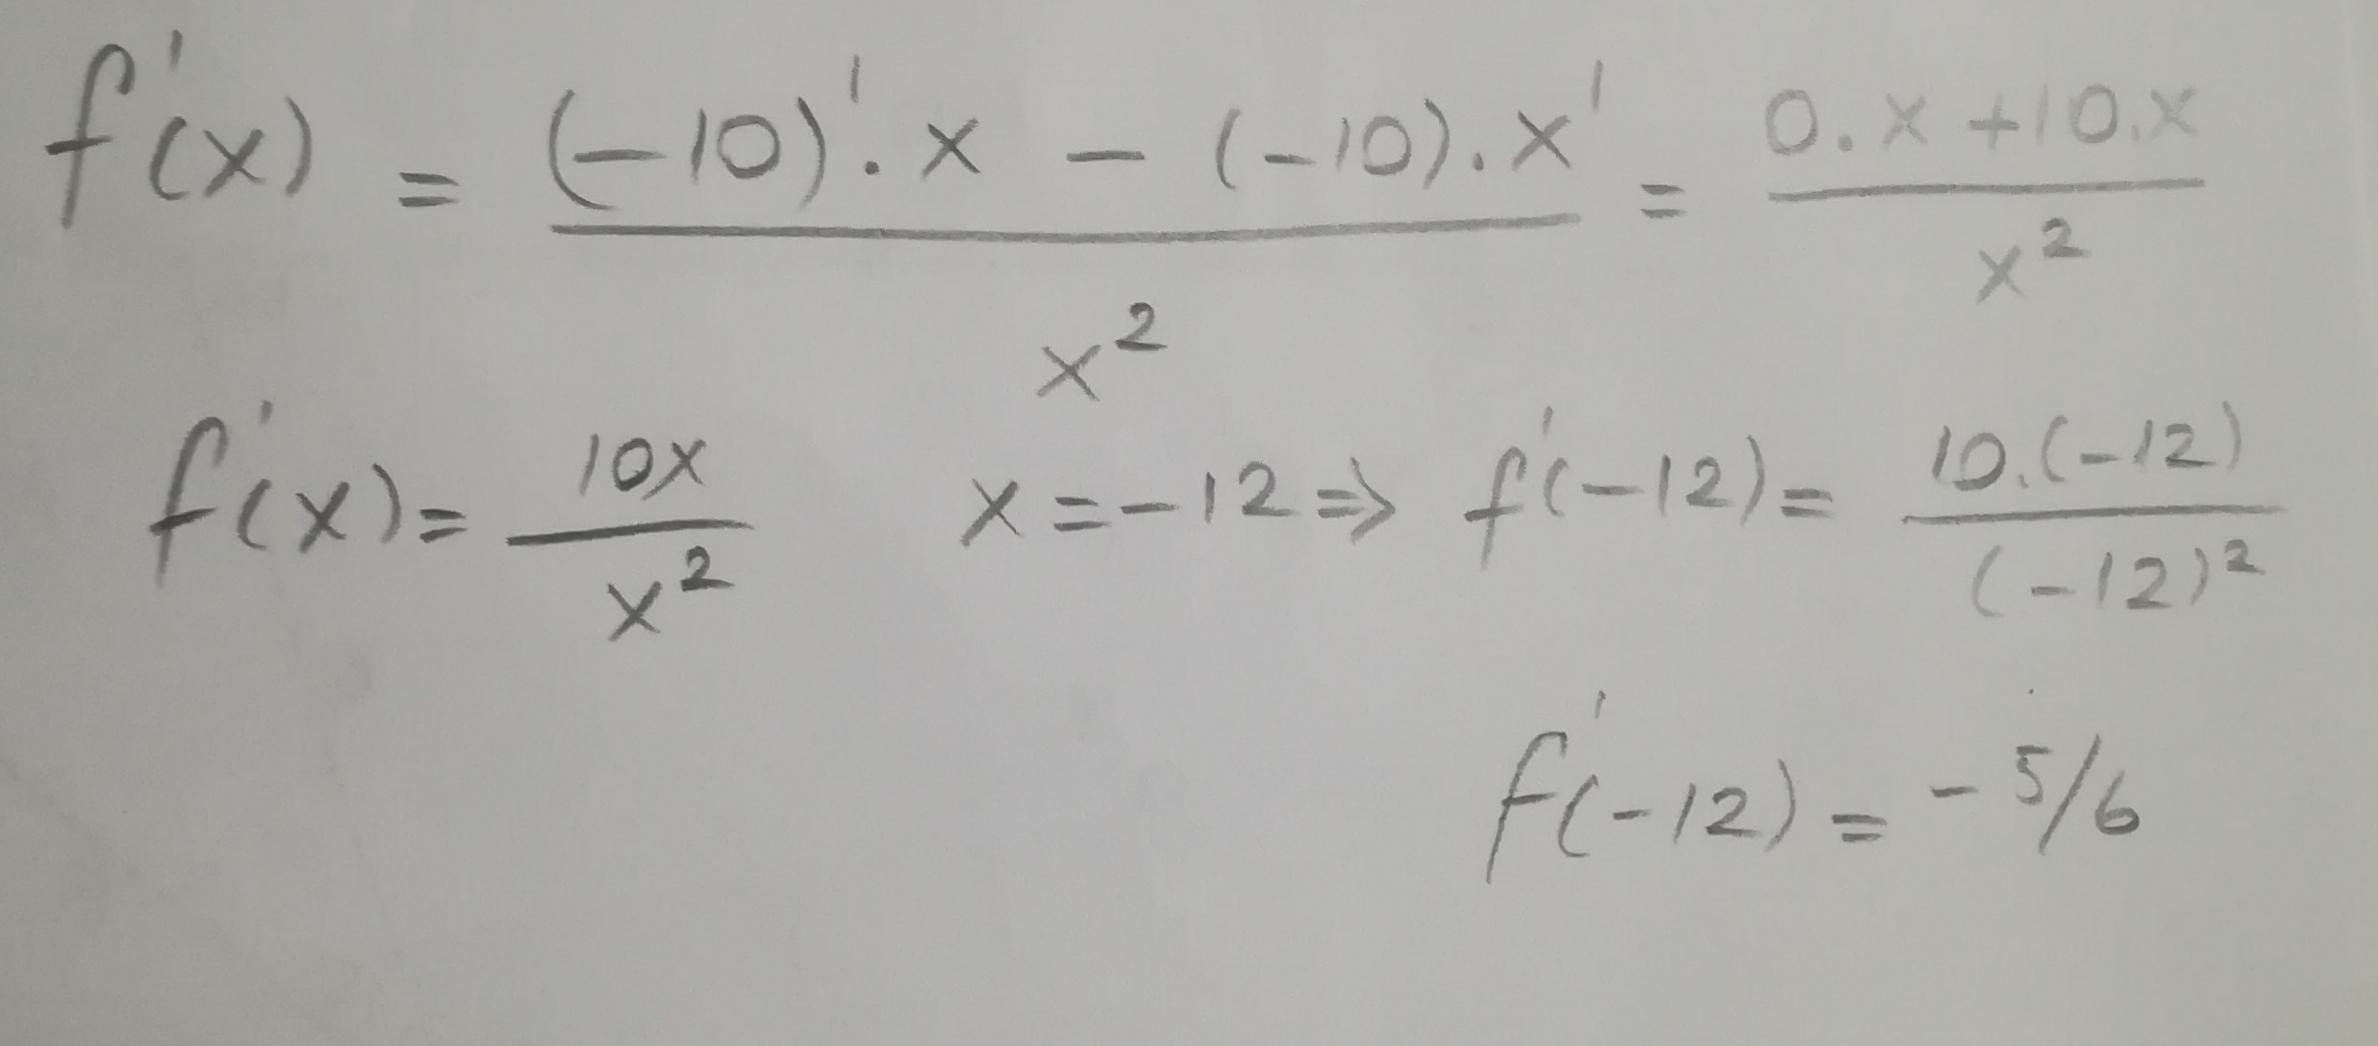 f'(x) = ((-10)'.x - (-10).x')/x² = (0.x+10.x)/x²
f'(x) = 10x/x² x=-12 ⇒ f'(-12) = 10.(-12)/(-12)²
f'(-12) = -5/6